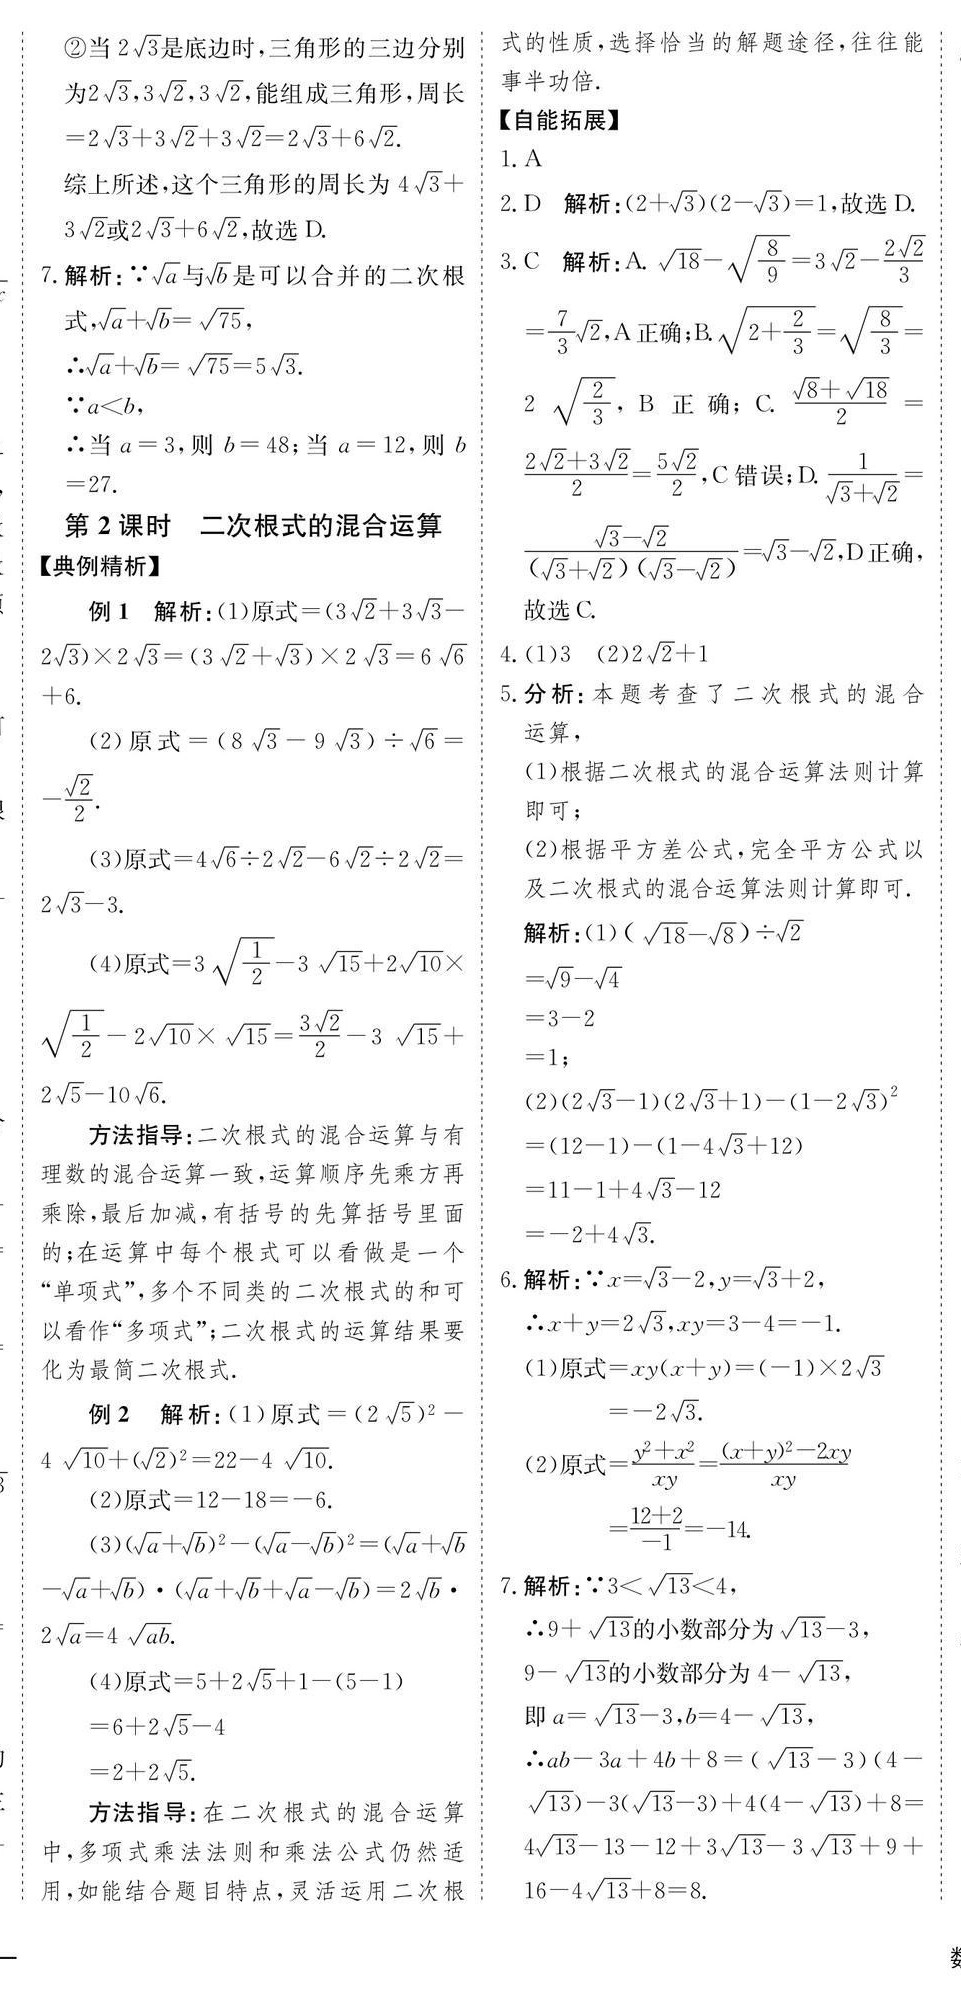 ②当 2√3是底边时,三角形的三边分别
为2√3,3√2,3√2,能组成三角形,周长
=2√3+3√2+3√2=2√3+6√2.
综上所述,这个三角形的周长为 4√3+
3√2或2√3+6√2,故选 D.
7. 解析:∵√a与√b是可以合并的二次根
式,√a+√b=√75,
∴√a+√b=√75=5√3.
∵a<b,
∴当 a=3,则 b=48;当 a=12,则 b
=27.
第 2 课时 二次根式的混合运算
【典例精析】
例 1 解析:(1)原式=(3√2+3√3-
2√3)×2√3=(3√2+√3)×2√3=6√6
+6.
(2)原式=(8√3-9√3)÷√6=
-√2/2.
(3)原式=4√6÷2√2-6√2÷2√2=
2√3-3.
(4)原式=3√(1/2)-3√15+2√10×
√(1/2)-2√10×√15=3√2/2-3√15+
2√5-10√6.
方法指导:二次根式的混合运算与有
理数的混合运算一致,运算顺序先乘方再
乘除,最后加减,有括号的先算括号里面
的;在运算中每个根式可以看做是一个
“单项式”,多个不同类的二次根式的和可
以看作“多项式”;二次根式的运算结果要
化为最简二次根式.
例 2 解析:(1)原式=(2√5)²-
4√10+(√2)²=22-4√10.
(2)原式=12-18=-6.
(3)(√a+√b)²-(√a-√b)²=(√a+√b
-√a+√b)·(√a+√b+√a-√b)=2√b·
2√a=4√ab.
(4)原式=5+2√5+1-(5-1)
=6+2√5-4
=2+2√5.
方法指导:在二次根式的混合运算
中,多项式乘法法则和乘法公式仍然适
用,如能结合题目特点,灵活运用二次根
式的性质,选择恰当的解题途径,往往能
事半功倍.
【自能拓展】
1. A
2. D 解析:(2+√3)(2-√3)=1,故选 D.
3. C 解析:A. √18-√(8/9)=3√2-2√2/3
=7/3√2,A 正确;B.√(2+2/3)=√(8/3)=
2√(2/3),B 正确;C. (√8+√18)/2=
(2√2+3√2)/2=5√2/2,C 错误;D. 1/(√3+√2)=
(√3-√2)/((√3+√2)(√3-√2))=√3-√2,D 正确,
故选 C.
4. (1)3 (2)2√2+1
5. 分析:本题考查了二次根式的混合
运算,
(1)根据二次根式的混合运算法则计算
即可;
(2)根据平方差公式,完全平方公式以
及二次根式的混合运算法则计算即可.
解析:(1)(√18-√8)÷√2
=√9-√4
=3-2
=1;
(2)(2√3-1)(2√3+1)-(1-2√3)²
=(12-1)-(1-4√3+12)
=11-1+4√3-12
=-2+4√3.
6. 解析:∵x=√3-2,y=√3+2,
∴x+y=2√3,xy=3-4=-1.
(1)原式=xy(x+y)=(-1)×2√3
=-2√3.
(2)原式=(y²+x²)/xy=((x+y)²-2xy)/xy
=(12+2)/-1=-14.
7. 解析:∵3<√13<4,
∴9+√13的小数部分为√13-3,
9-√13的小数部分为 4-√13,
即 a=√13-3,b=4-√13,
∴ab-3a+4b+8=(√13-3)(4-
√13)-3(√13-3)+4(4-√13)+8=
4√13-13-12+3√13-3√13+9+
16-4√13+8=8.